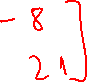 - 8 ]
21